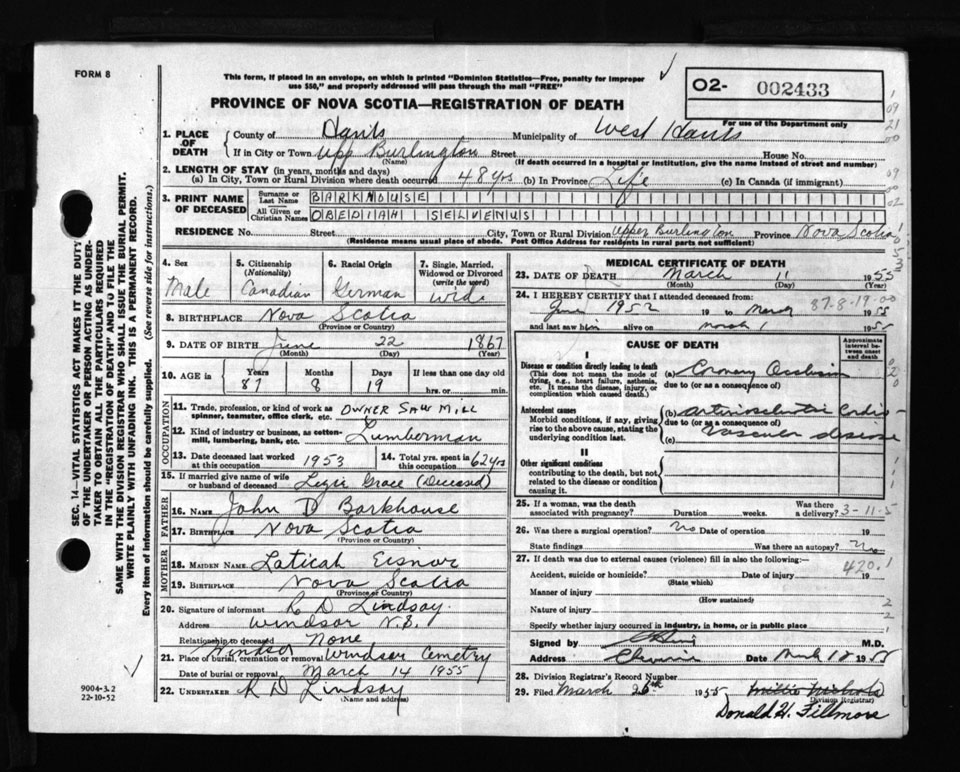 FORM 8
This form, if placed in an envelope, on which is printed "Dominion Statistics—Free, penalty for improper
use $50," and properly addressed will pass through the mail "FREE"
O2- 002433
PROVINCE OF NOVA SCOTIA—REGISTRATION OF DEATH
For use of the Department only
1. PLACE OF DEATH
County of Hants Municipality of West Hants
If in City or Town Upp Burlington Street House No.
(Name) (If death occurred in a hospital or institution, give the name instead of street and number)
2. LENGTH OF STAY (in years, months and days)
(a) In City, Town or Rural Division where death occurred 48 yrs (b) In Province Life (c) In Canada (if immigrant)
3. PRINT NAME OF DECEASED
Surname or Last Name BARKHOUSE
All Given or Christian Names OBEDIAH SELVENUS
RESIDENCE No. Street City, Town or Rural Division Upper Burlington Province Nova Scotia
(Residence means usual place of abode. Post Office Address for residents in rural parts not sufficient)
4. Sex Male
5. Citizenship (Nationality) Canadian
6. Racial Origin German
7. Single, Married, Widowed or Divorced (write the word) Wid.
8. BIRTHPLACE Nova Scotia
(Province or Country)
9. DATE OF BIRTH June 22 1867
(Month) (Day) (Year)
10. AGE Years 87 Months 8 Days 19 If less than one day old hrs. or min.
OCCUPATION
11. Trade, profession, or kind of work as spinner, teamster, office clerk, etc. OWNER SAW MILL
12. Kind of industry or business, as cotton-mill, lumbering, bank, etc. Lumberman
13. Date deceased last worked at this occupation 1953
14. Total yrs. spent in this occupation 62 yrs
15. If married give name of wife or husband of deceased Lizzie Grace (Deceased)
FATHER
16. NAME John D Barkhouse
17. BIRTHPLACE Nova Scotia
(Province or Country)
MOTHER
18. MAIDEN NAME Laticah Eisnor
19. BIRTHPLACE Nova Scotia
(Province or Country)
20. Signature of informant R D Lindsay
Address Windsor N.S.
Relationship to deceased None
21. Place of burial, cremation or removal Windsor Windsor Cemetery
Date of burial or removal March 14 1955
22. UNDERTAKER R D Lindsay
(Name and address)
MEDICAL CERTIFICATE OF DEATH
23. DATE OF DEATH March 11 1955
(Month) (Day)
24. I HEREBY CERTIFY that I attended deceased from:
June 1952 19 to March 1955
87-8-19-00
and last saw him alive on March 1 1955
CAUSE OF DEATH
Approximate interval between onset and death
I
Disease or condition directly leading to death
(This does not mean the mode of dying, e.g., heart failure, asthma, etc. It means the disease, injury, or complication which caused death.)
(a) Coronary Occlusion
due to (or as a consequence of)
Antecedent causes
Morbid conditions, if any, giving rise to the above cause, stating the underlying condition last.
(b) arteriosclerotic Cardio
due to (or as a consequence of)
(c) vascular disease
II
Other significant conditions
contributing to the death, but not related to the disease or condition causing it.
25. If a woman, was the death associated with pregnancy? Duration weeks. Was there a delivery?
3-11-5
26. Was there a surgical operation? No Date of operation 19
State findings Was there an autopsy? No
27. If death was due to external causes (violence) fill in also the following:
420.1
Accident, suicide or homicide? Date of injury 19
(State which)
Manner of injury
(How sustained)
Nature of injury
Specify whether injury occurred in industry, in home, or in public place
Signed by M.D.
Address Date March 12 1955
28. Division Registrar's Record Number
29. Filed March 26th 1955 Millie Nichols
(Division Registrar)
Donald H. Fillmore
SEC. 14—VITAL STATISTICS ACT MAKES IT THE DUTY
OF THE UNDERTAKER OR PERSON ACTING AS UNDER-
TAKER TO OBTAIN ALL THE PARTICULARS REQUIRED
IN THE "REGISTRATION OF DEATH" AND TO FILE THE
SAME WITH THE DIVISION REGISTRAR WHO SHALL ISSUE THE BURIAL PERMIT.
WRITE PLAINLY WITH UNFADING INK. THIS IS A PERMANENT RECORD.
Every item of information should be carefully supplied. (See reverse side for instructions.)
9004-3.2
22-10-52